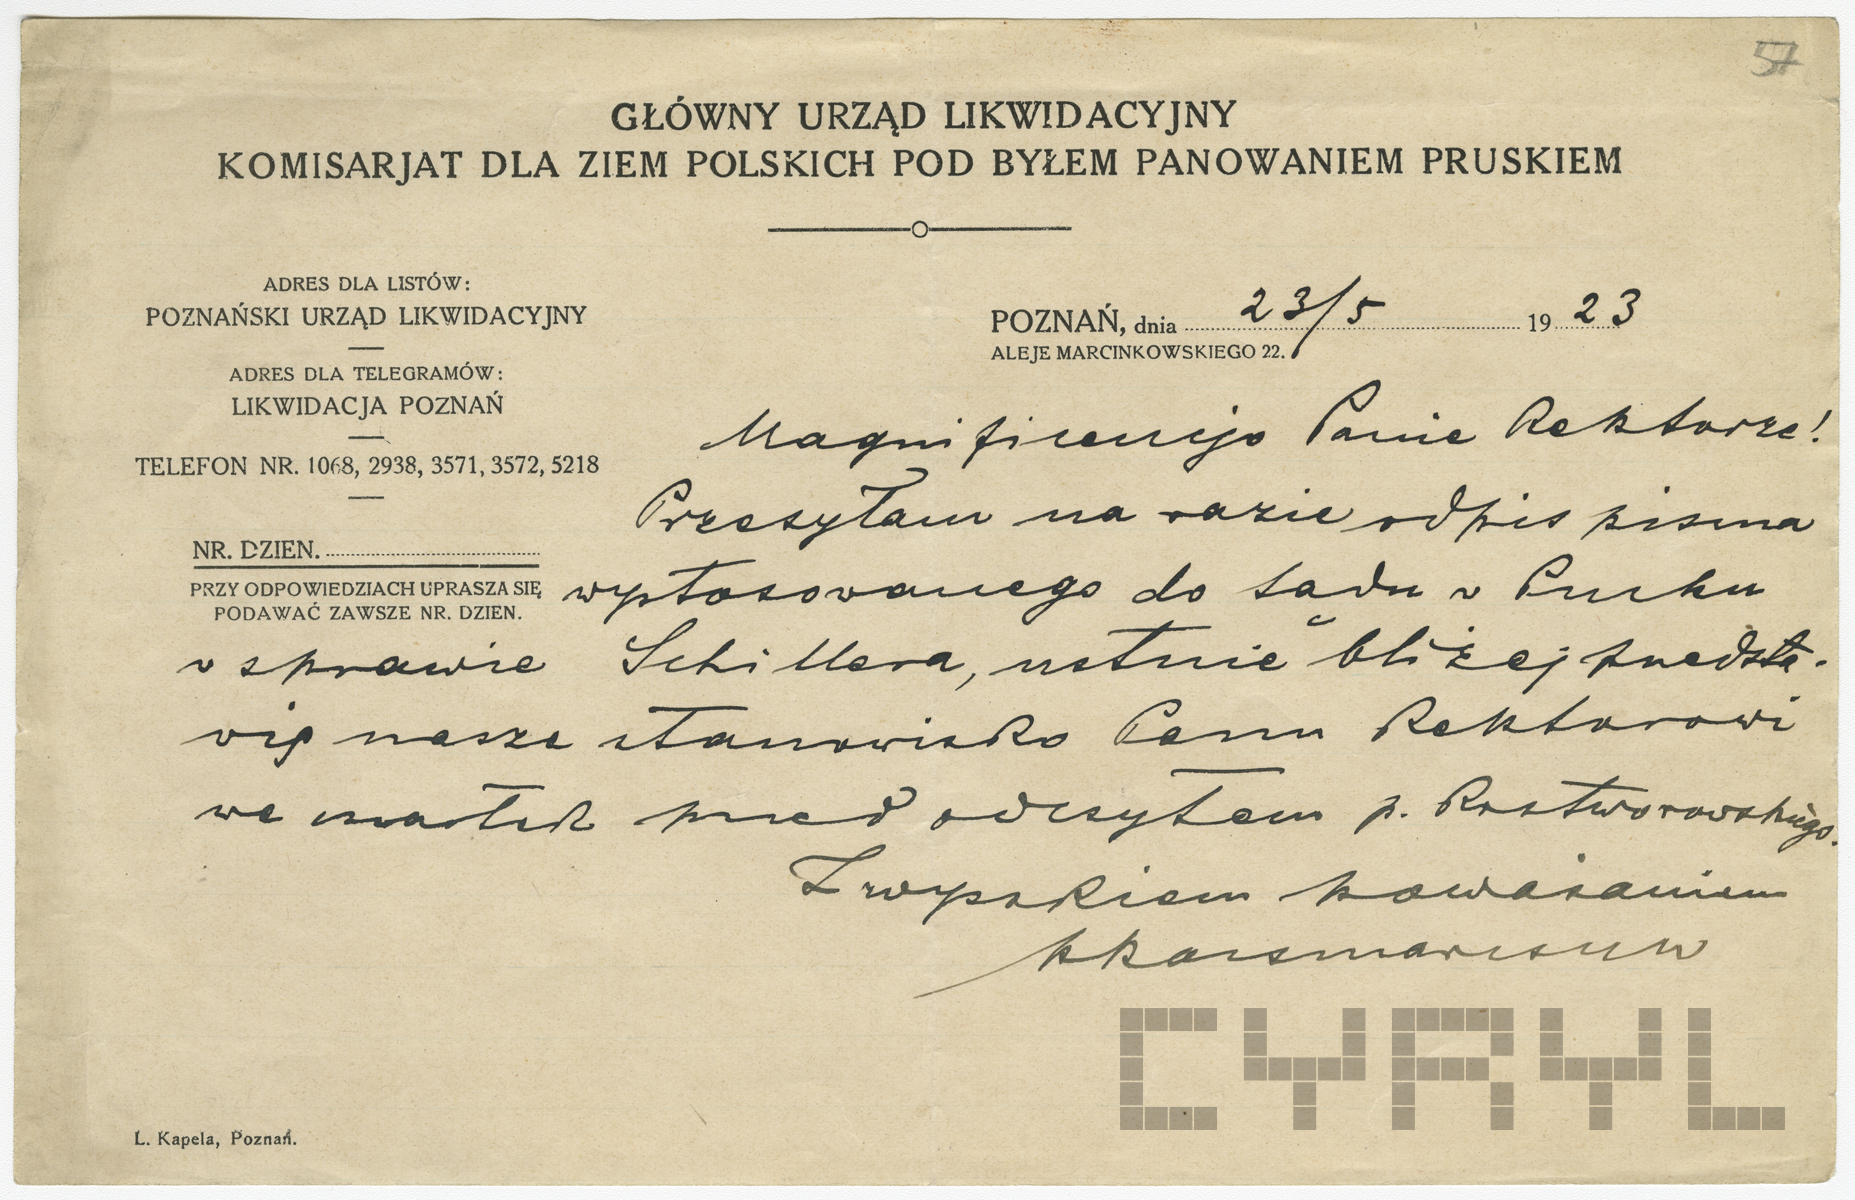 57
GŁÓWNY URZĄD LIKWIDACYJNY
KOMISARJAT DLA ZIEM POLSKICH POD BYŁEM PANOWANIEM PRUSKIEM
ADRES DLA LISTÓW:
POZNAŃSKI URZĄD LIKWIDACYJNY
ADRES DLA TELEGRAMÓW:
LIKWIDACJA POZNAŃ
TELEFON NR. 1068, 2938, 3571, 3572, 5218
NR. DZIEN.
PRZY ODPOWIEDZIACH UPRASZA SIĘ
PODAWAĆ ZAWSZE NR. DZIEN.
POZNAŃ, dnia 23/5 1923
ALEJE MARCINKOWSKIEGO 22.
Magnificencjo Panie Rektorze!
Przesyłam na razie odpis pisma
wystosowanego do sądu w Pucku
w sprawie Schillera, ustnie bliżej przedsta-
wię nasze stanowisko Panu Rektorowi
we czwartek przed odczytem p. Rostworowskiego.
Z wysokiem poważaniem
CYRYL
L. Kapela, Poznań.